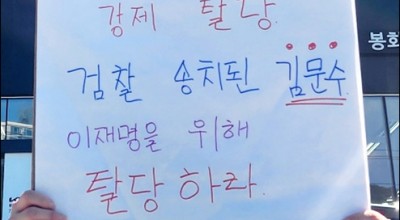 강제 탈당
검찰 송치된 김문수
이재명을 위해
탈당하라.
봉화